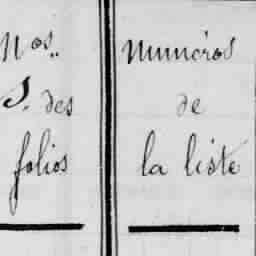 Nos.
S. des
folios
Numéros
de
la liste